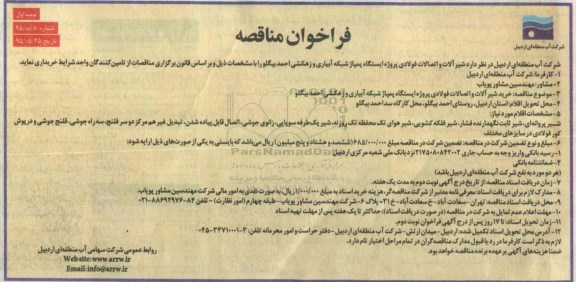 نوبت اول
شماره ۸ / ت / ۹۵
تاریخ ۹۵/۰۵/۲۵
فراخوان مناقصه
شرکت آب منطقه‌ای اردبیل
شرکت آب منطقه‌ای اردبیل در نظر دارد شیرآلات و اتصالات فولادی پروژه ایستگاه پمپاژ شبکه آبیاری و زهکشی احمد بیگلو را با مشخصات ذیل و بر اساس قانون برگزاری مناقصات از تامین‌کنندگان واجد شرایط خریداری نماید.
۱- کارفرما: شرکت آب منطقه‌ای اردبیل
۲- مشاور: مهندسین مشاور پویاب
۳- موضوع مناقصه: خرید شیرآلات و اتصالات فولادی پروژه ایستگاه پمپاژ شبکه آبیاری و زهکشی احمد بیگلو
۴- محل تحویل اقلام: استان اردبیل، روستای احمد بیگلو، محل کارگاه سد احمد بیگلو
۵- مشخصات اقلام مورد نیاز:
شیر پروانه‌ای، شیر ثابت نگهدارنده فشار، شیر فلکه کشویی، شیر هوای تک محفظه تک روزنه، شیر یک‌طرفه سوپاپی، زانوی جوشی، اتصال قابل پیاده شدن، تبدیل غیر هم مرکز دو سر فلنج، سه راه جوشی، فلنج جوشی و درپوش کور فولادی در سایزهای مختلف
۶- مبلغ و نوع تضمین شرکت در مناقصه: تضمین شرکت در مناقصه مبلغ ۶۸۵/۰۰۰/۰۰۰ (ششصد و هشتاد و پنج میلیون) ریال می‌باشد که بایستی به یکی از صورت‌های ذیل ارایه شود:
۱- رسید بانکی واریز وجه به حساب جاری ۲۱۷۵۰۸۰۸۴۲۰۰۲ نزد بانک ملی شعبه مرکزی اردبیل
۲- ضمانتنامه بانکی
(هر دو مورد به نفع شرکت آب منطقه‌ای اردبیل باشد)
۷- زمان دریافت اسناد مناقصه: از تاریخ درج آگهی نوبت دوم به مدت یک هفته.
۸- مدارک لازم برای دریافت اسناد: معرفی‌نامه معتبر از شرکت مناقصه‌گر، هزینه خرید اسناد به مبلغ ۱/۰۰۰/۰۰۰ (ریال) به صورت نقدی به امور مالی شرکت مهندسین مشاور پویاب.
۹- محل دریافت اسناد مناقصه: تهران- سعادت آباد- خ سعادت آباد- خ ۳۱- پلاک ۶- شرکت مهندسین مشاور پویاب- طبقه چهارم (امور نظارت)- تلفن ۸۴-۸۸۶۹۲۹۷۶-۰۲۱
۱۰- مهلت اعلام عدم تمایل به شرکت در مناقصه (در صورت دریافت اسناد): حداکثر تا یک هفته پس از مهلت تهیه اسناد
۱۱- زمان تحویل اسناد: تا ۱۷ روز پس از درج آگهی فراخوان نوبت دوم.
۱۲- آدرس محل تحویل اسناد تکمیل شده: اردبیل- میدان ارتش- شرکت آب منطقه‌ای اردبیل- دفتر حراست و امور محرمانه تلفن: ۳-۳۳۷۱۰۰۰۱-۰۴۵
لازم به ذکر است کارفرما در رد یا قبول مدارک مناقصه‌گران در تمام مراحل اختیار تام دارد.
ضمنا هزینه‌های آگهی بر عهده برنده مناقصه خواهد بود.
روابط عمومی شرکت سهامی آب منطقه‌ای اردبیل
Website: www.arrw.ir
Email: info@arrw.ir